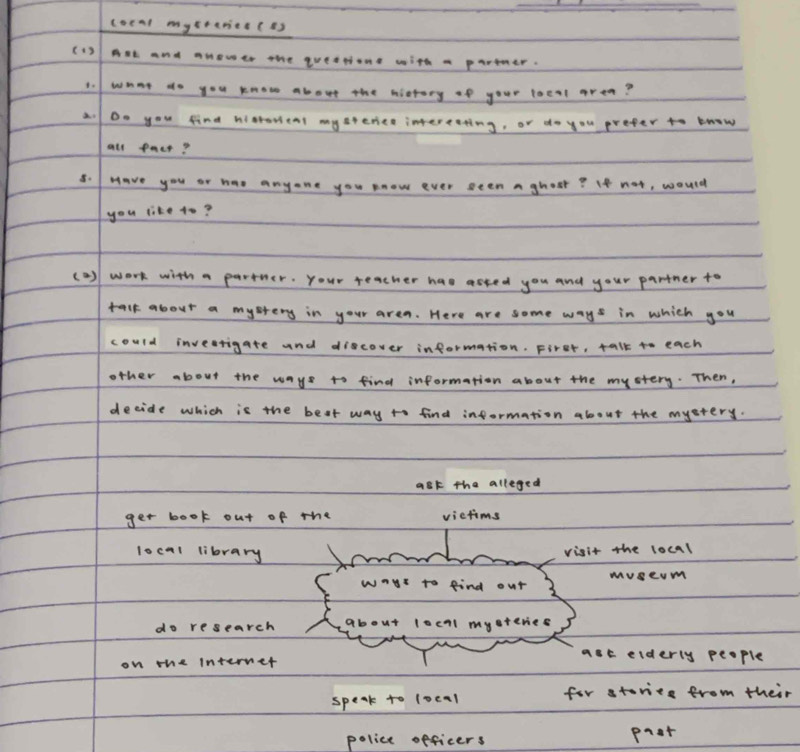 Local mysteries (S)
(1) Ask and answer the questions with a partner.
1. What do you know about the history of your local area?
2. Do you find historical mysteries interesting, or do you prefer to know
all fact?
3. Have you or has anyone you know ever seen a ghost? If not, would
you like to?
(2) Work with a partner. Your teacher has asked you and your partner to
talk about a mystery in your area. Here are some ways in which you
could investigate and discover information. First, talk to each
other about the ways to find information about the mystery. Then,
decide which is the best way to find information about the mystery.
ask the alleged
victims
get book out of the
local library
visit the local
museum
ways to find out
about local mysteries
do research
on the Internet
ask elderly people
for stories from their
past
speak to local
police officers